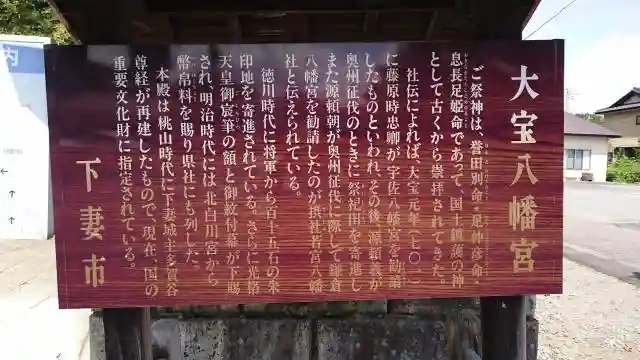 大宝八幡宮
ご祭神は、誉田別命、足仲彦命、
息長足姫命であって、国土鎮護の神
として古くから崇拝されてきた。
社伝によれば、大宝元年(七〇一)
に藤原時忠卿が宇佐八幡宮を勧請
したものといわれ、その後、源頼義が
奥州征伐のときに祭祀田を寄進し
また源頼朝が奥州征伐に際して鎌倉
八幡宮を勧請したのが摂社若宮八幡
社と伝えられている。
徳川時代に将軍から百十五石の朱
印地を寄進されている。さらに光格
天皇御宸筆の額と御紋付幕が下賜
され、明治時代には北白川宮から
幣帛料を賜り県社にも列した。
本殿は桃山時代に下妻城主多賀谷
尊経が再建したもので、現在、国の
重要文化財に指定されている。
下妻市
内